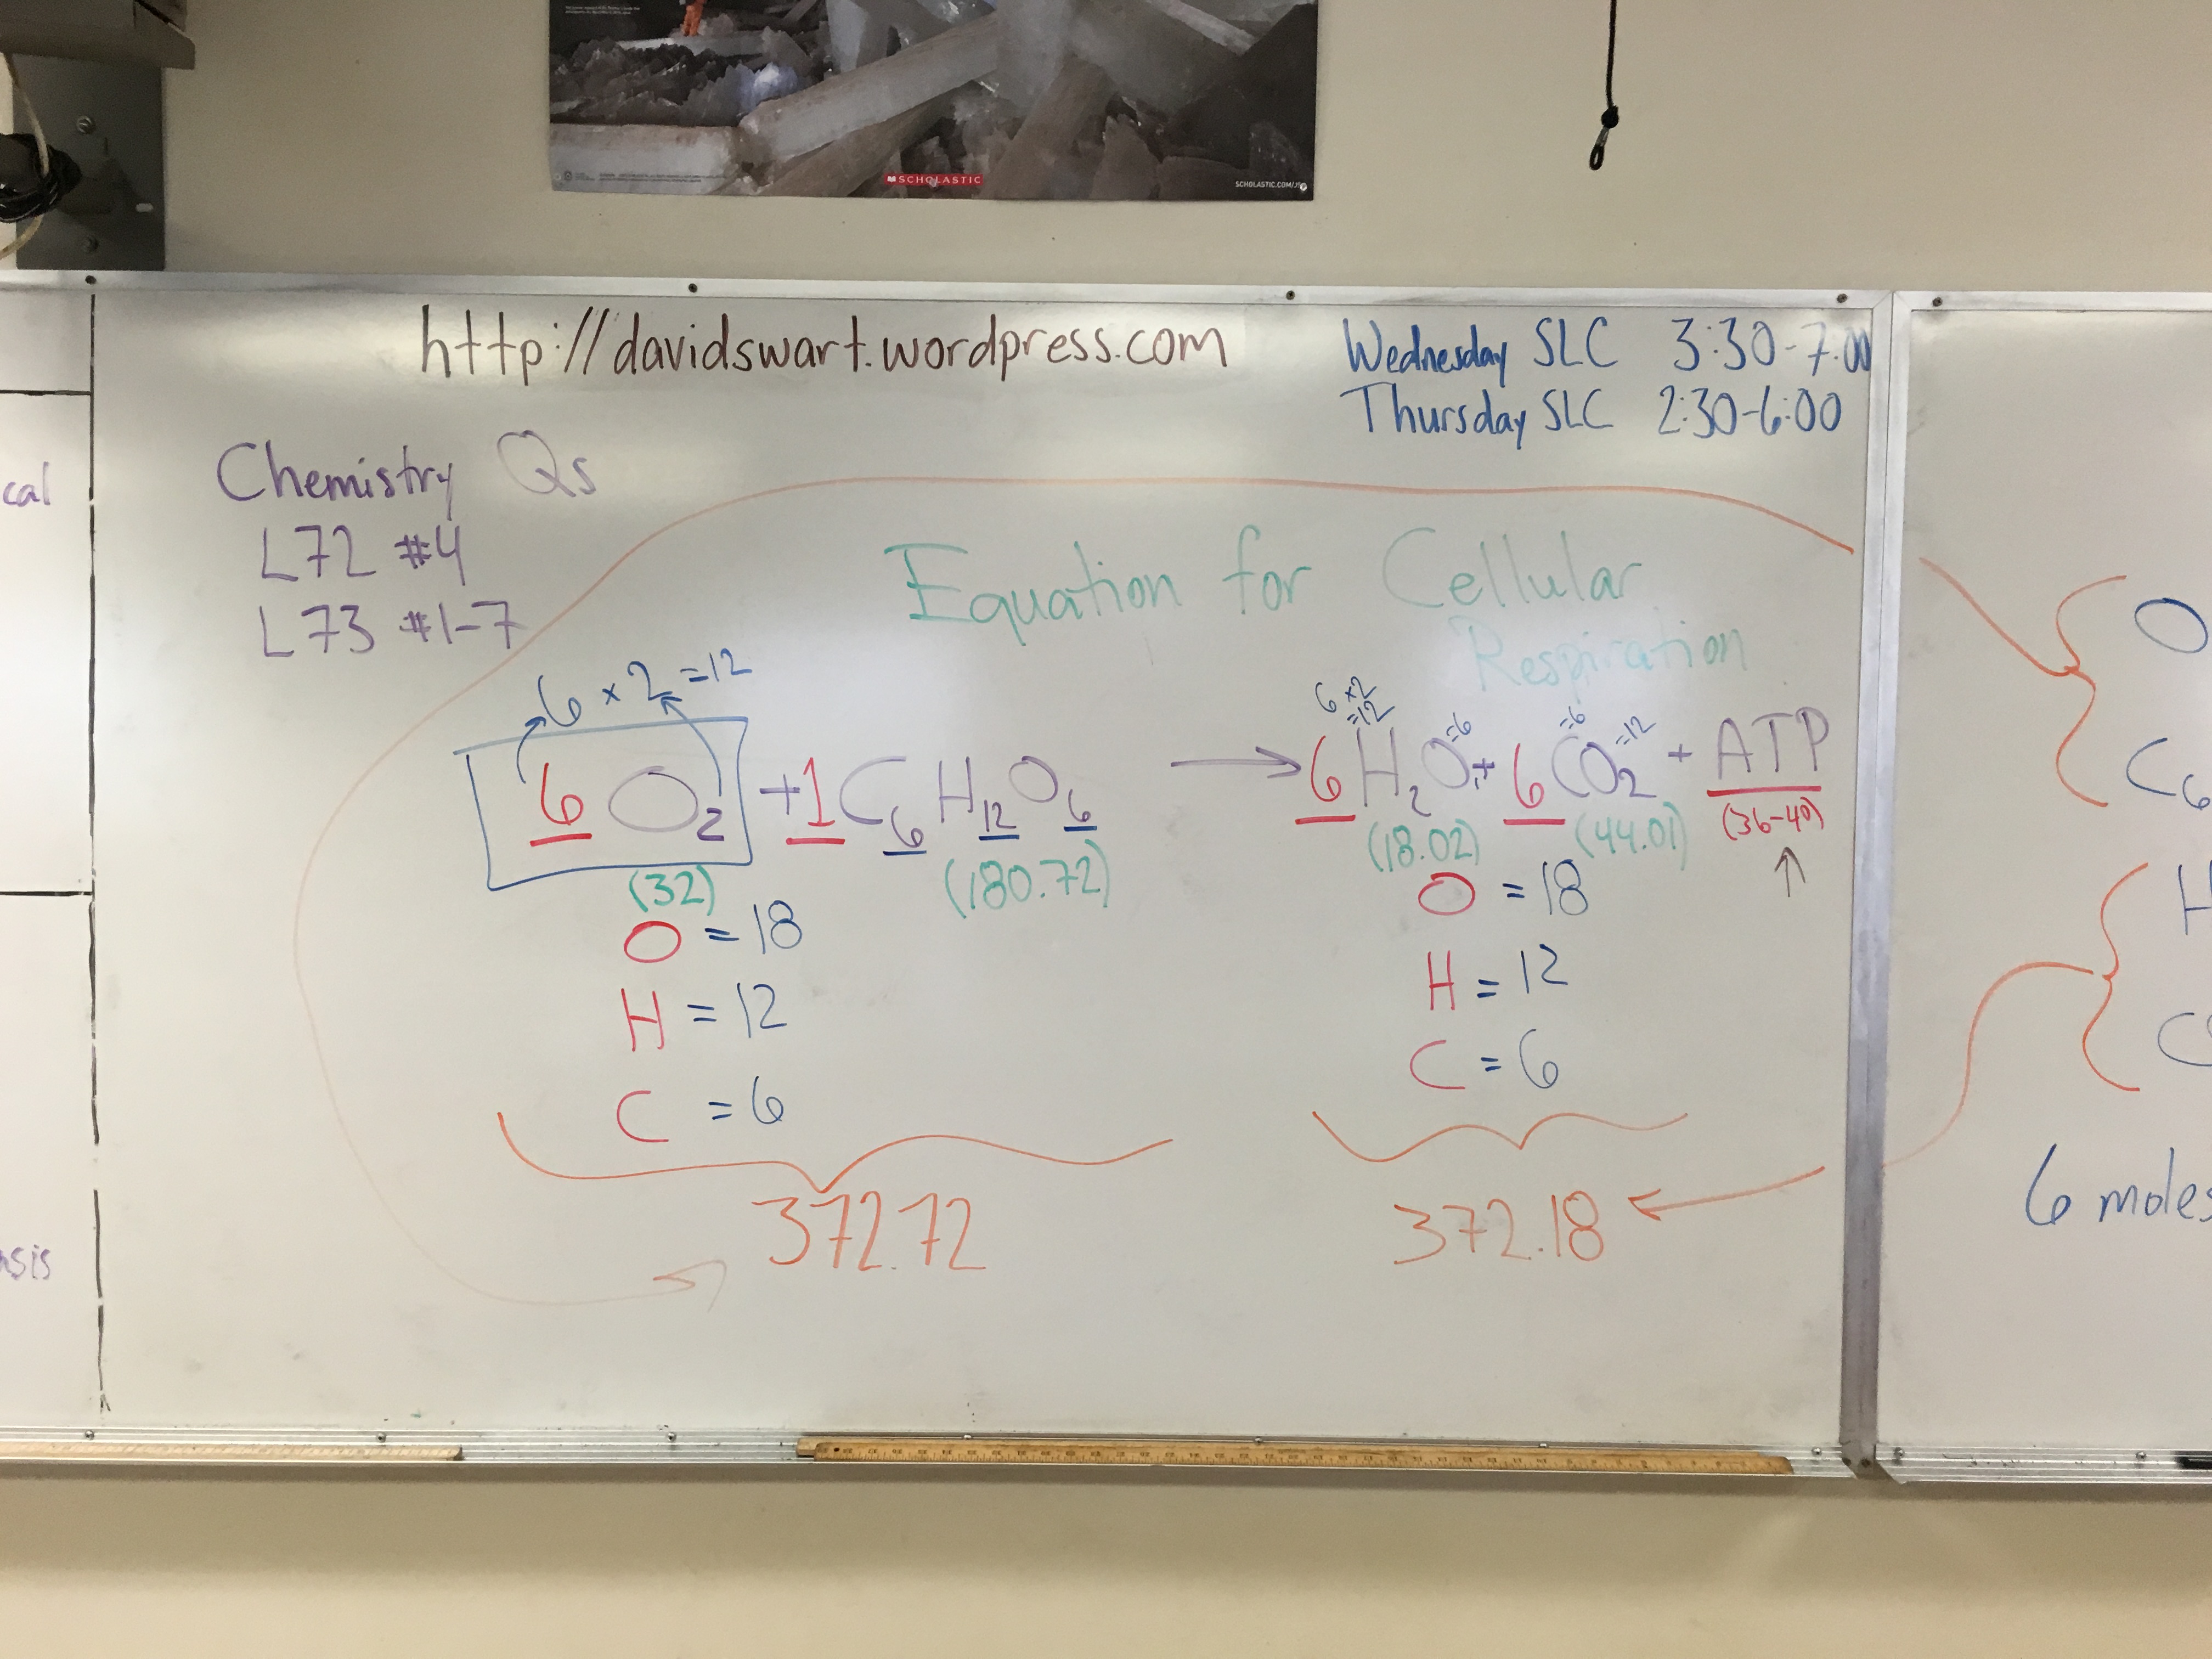 SCHOLASTIC
SCHOLASTIC.COM/
http://davidswart.wordpress.com
Wednesday SLC 3:30-7:00
Thursday SLC 2:30-6:00
cal
Chemistry Qs
L72 #4
L73 #1-7
Equation for Cellular
Respiration
6 × 2 = 12
6 ×2
=12
=6
=6
=12
6 O2 + 1 C6 H12 O6 → 6 H2O + 6 CO2 + ATP
(32) (180.72) (18.02) (44.01) (36-40)
O = 18
H = 12
C = 6
O = 18
H = 12
C = 6
372.72
372.18
O
C6
H
C
6 moles
sis